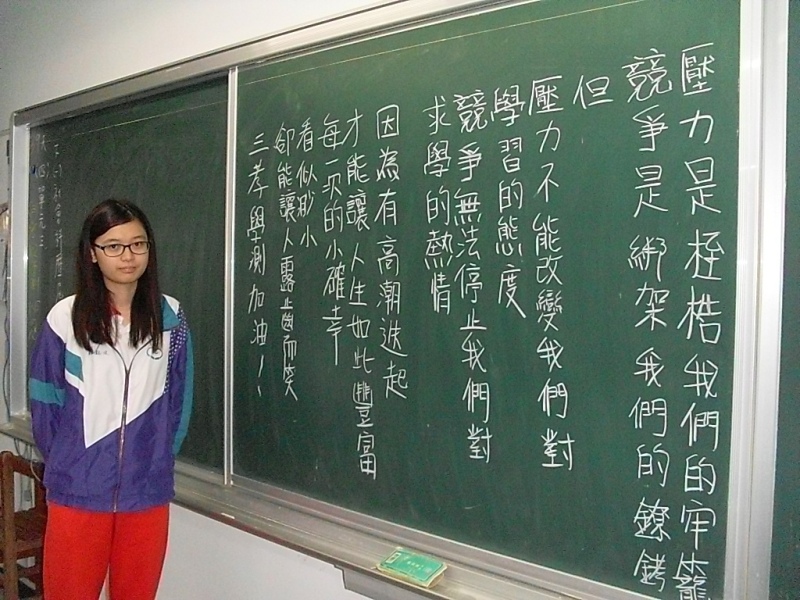 壓力是桎梏我們的牢籠
競爭是綁架我們的鐐銬
但
壓力不能改變我們對
學習的態度
競爭無法停止我們對
求學的熱情
因為有高潮迭起
才能讓人生如此豐富
每一次的小確幸
看似渺小
卻能讓人露齒而笑
三孝學測加油!